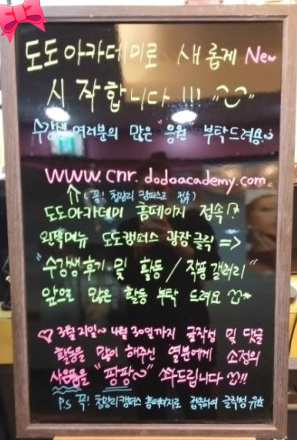 도도아카데미로 새롭게 New
시작합니다!!! "
수강생 여러분의 많은 "응원" 부탁드려용~
www.cnr.dodoacademy.com
↑ (꼭! 청량리 캠퍼스로 접속)
도도아카데미 홈페이지 접속!
왼쪽메뉴 도도캠퍼스 광장 클릭 =>
"수강생후기 및 활동 / 작품갤러리"
앞으로 많은 활동 부탁 드려요
♡ 3월 21일~ 4월 30일까지 글작성 및 댓글
활동을 많이 해주신 열분에게 소정의
사은품을 "팡팡~" 쏴드립니다 !!
P.S 꼭! 청량리캠퍼스 홈페이지로 접속하여 글작성